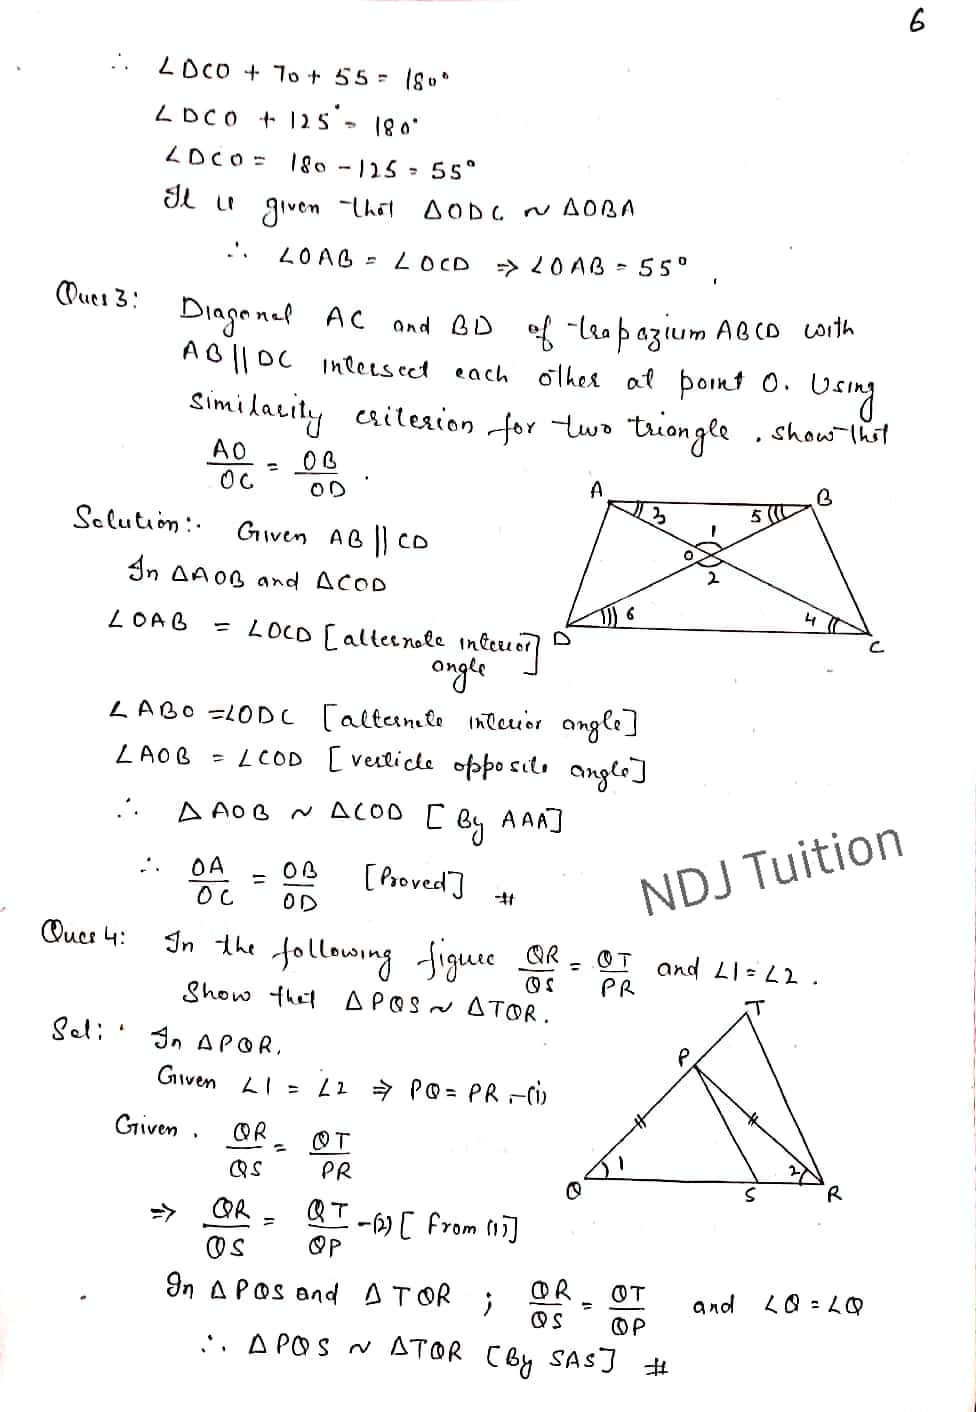 6
∴ ∠DCO + 70 + 55 = 180°
∠DCO + 125° = 180°
∠DCO = 180 - 125 = 55°
It is given that ΔODC ~ ΔOBA
∴ ∠OAB = ∠OCD ⇒ ∠OAB = 55°
Ques 3: Diagonal AC and BD of trapazium ABCD with
AB || DC intersect each other at point O. Using
Similarity criterion for two triangle, show that
AO/OC = OB/OD.
A B
3 5 1
O
2
6 4
D C
Solution:- Given AB || CD
In ΔAOB and ΔCOD
∠OAB = ∠OCD [alternate interior
angle]
∠ABO = ∠ODC [alternate interior angle]
∠AOB = ∠COD [verticle opposite angle]
∴ ΔAOB ~ ΔCOD [By AAA]
∴ OA/OC = OB/OD [Proved] #
NDJ Tuition
Ques 4: In the following figure QR/QS = QT/PR and ∠1 = ∠2.
Show that ΔPQS ~ ΔTQR.
Sol: In ΔPQR,
Given ∠1 = ∠2 ⇒ PQ = PR -(i)
Given, QR/QS = QT/PR
⇒ QR/QS = QT/QP -(2) [From (1)]
T
P
1 2
Q S R
In ΔPQS and ΔTQR ; QR/QS = QT/QP and ∠Q = ∠Q
∴ ΔPQS ~ ΔTQR [By SAS] #